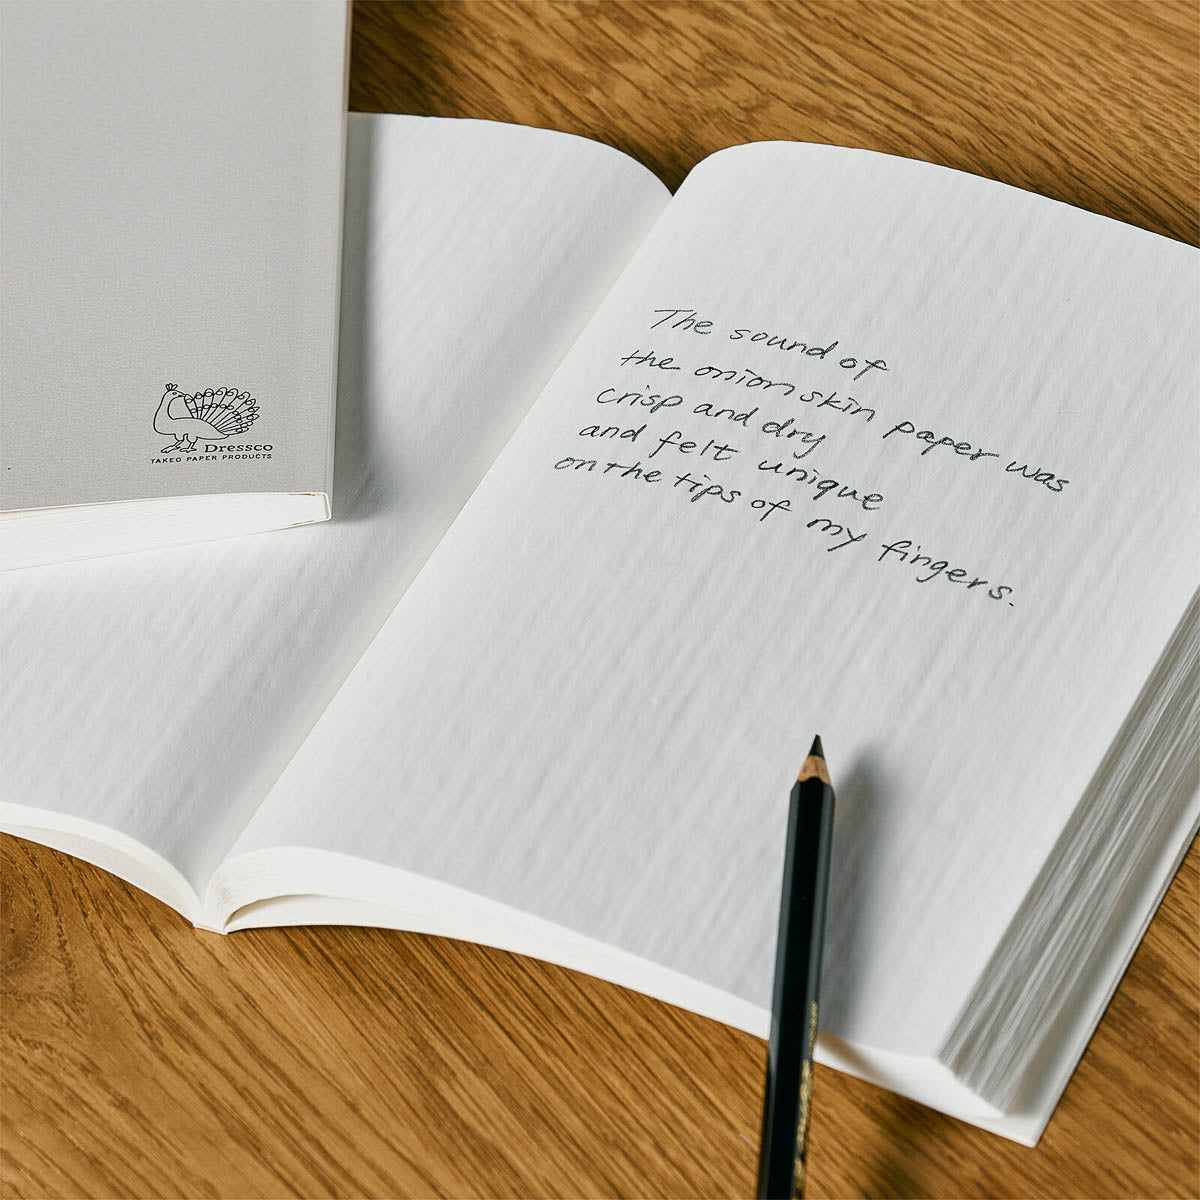 The sound of
the onion skin paper was
crisp and dry
and felt unique
on the tips of my fingers.
Dressco
TAKEO PAPER PRODUCTS